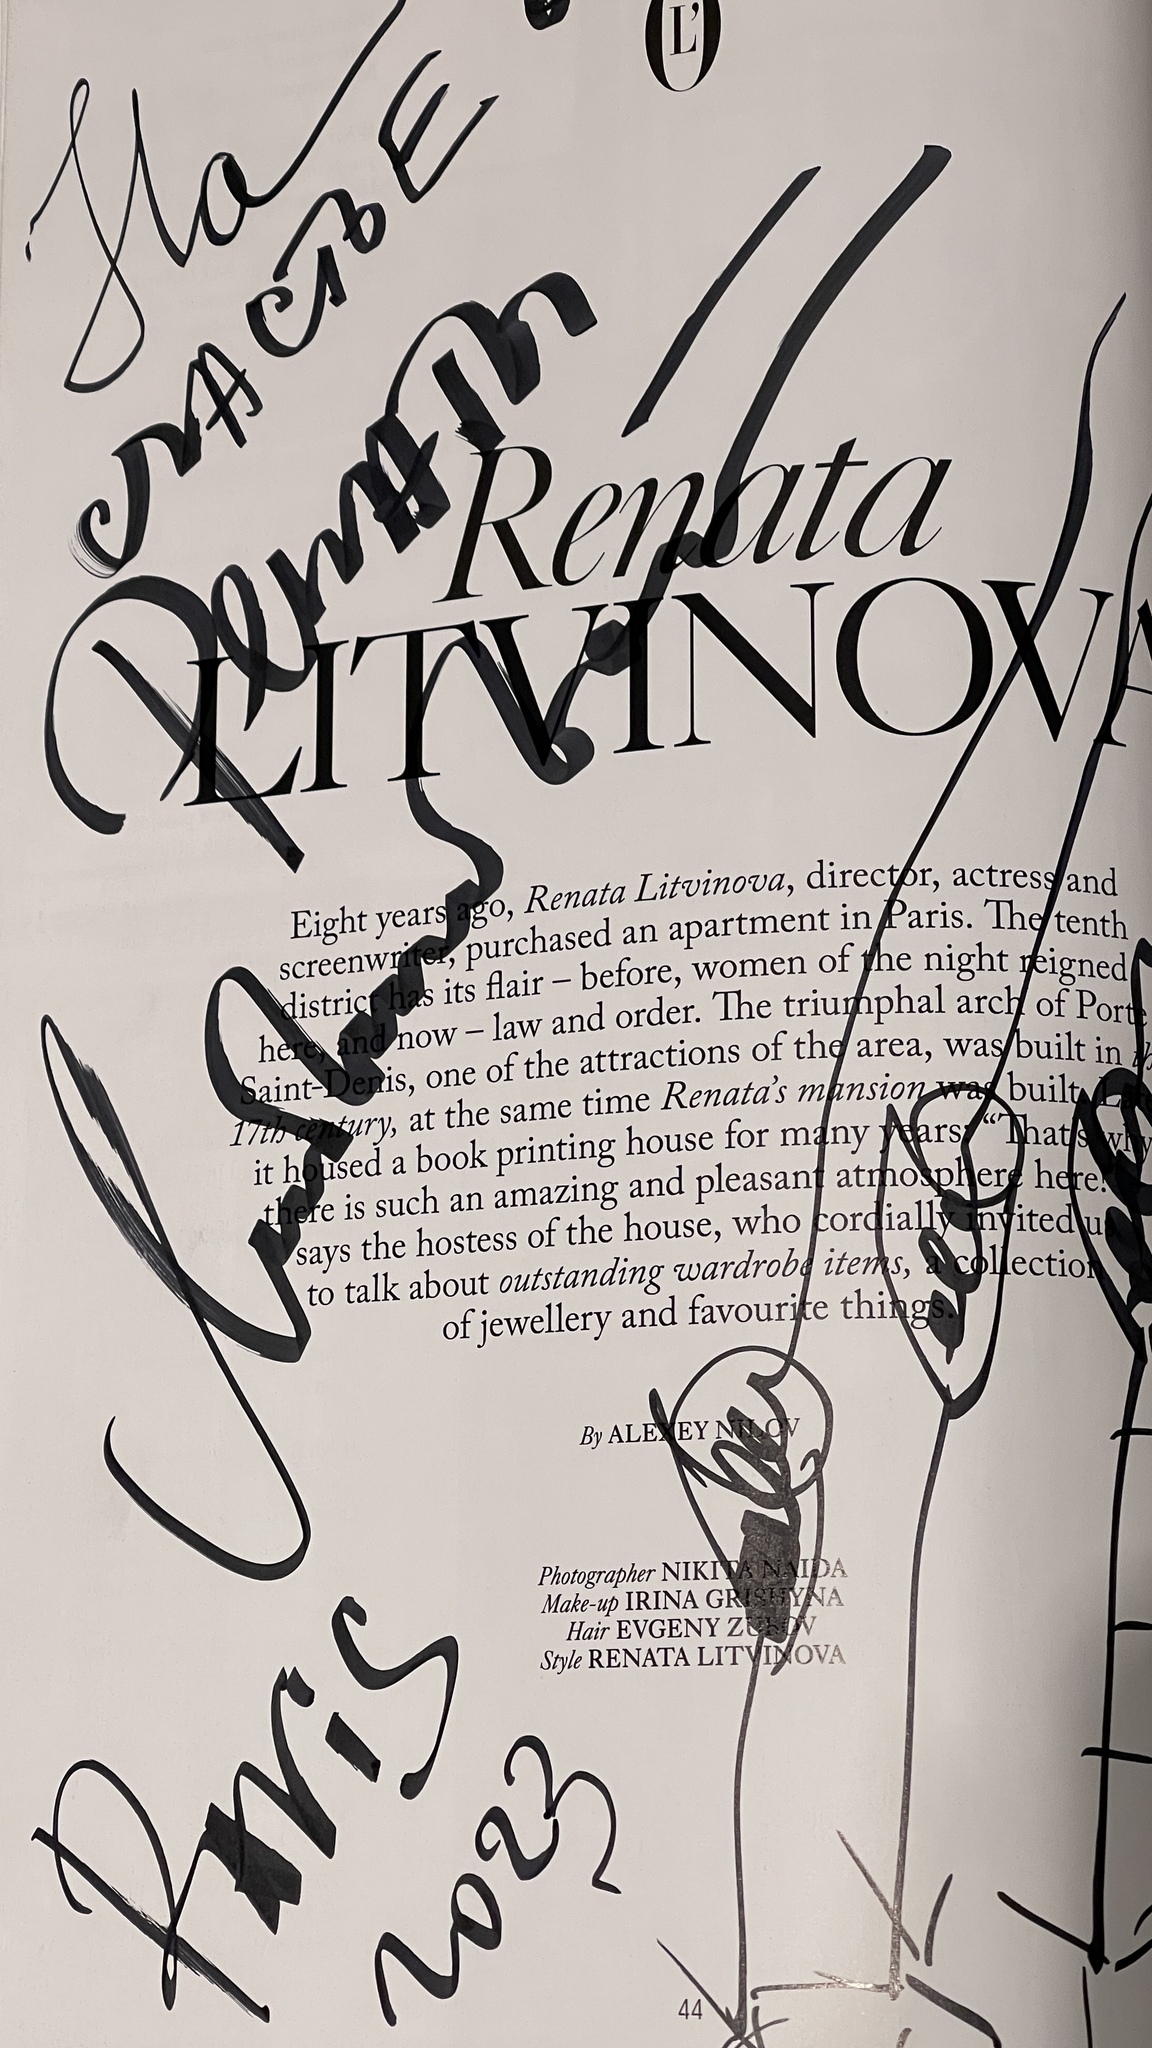 L'O
На
счастье
Рената
Renata
LITVINOVA
Литвинова
Eight years ago, Renata Litvinova, director, actress and
screenwriter, purchased an apartment in Paris. The tenth
district has its flair – before, women of the night reigned
here, and now – law and order. The triumphal arch of Porte
Saint-Denis, one of the attractions of the area, was built in
17th century, at the same time Renata's mansion was built.
it housed a book printing house for many years: “That's why
there is such an amazing and pleasant atmosphere here!
says the hostess of the house, who cordially invited us
to talk about outstanding wardrobe items, a collection
of jewellery and favourite things.
By ALEXEY NILOV
Photographer NIKITA NAIDA
Make-up IRINA GRISHYNA
Hair EVGENY ZUBOV
Style RENATA LITVINOVA
Paris
2023
44